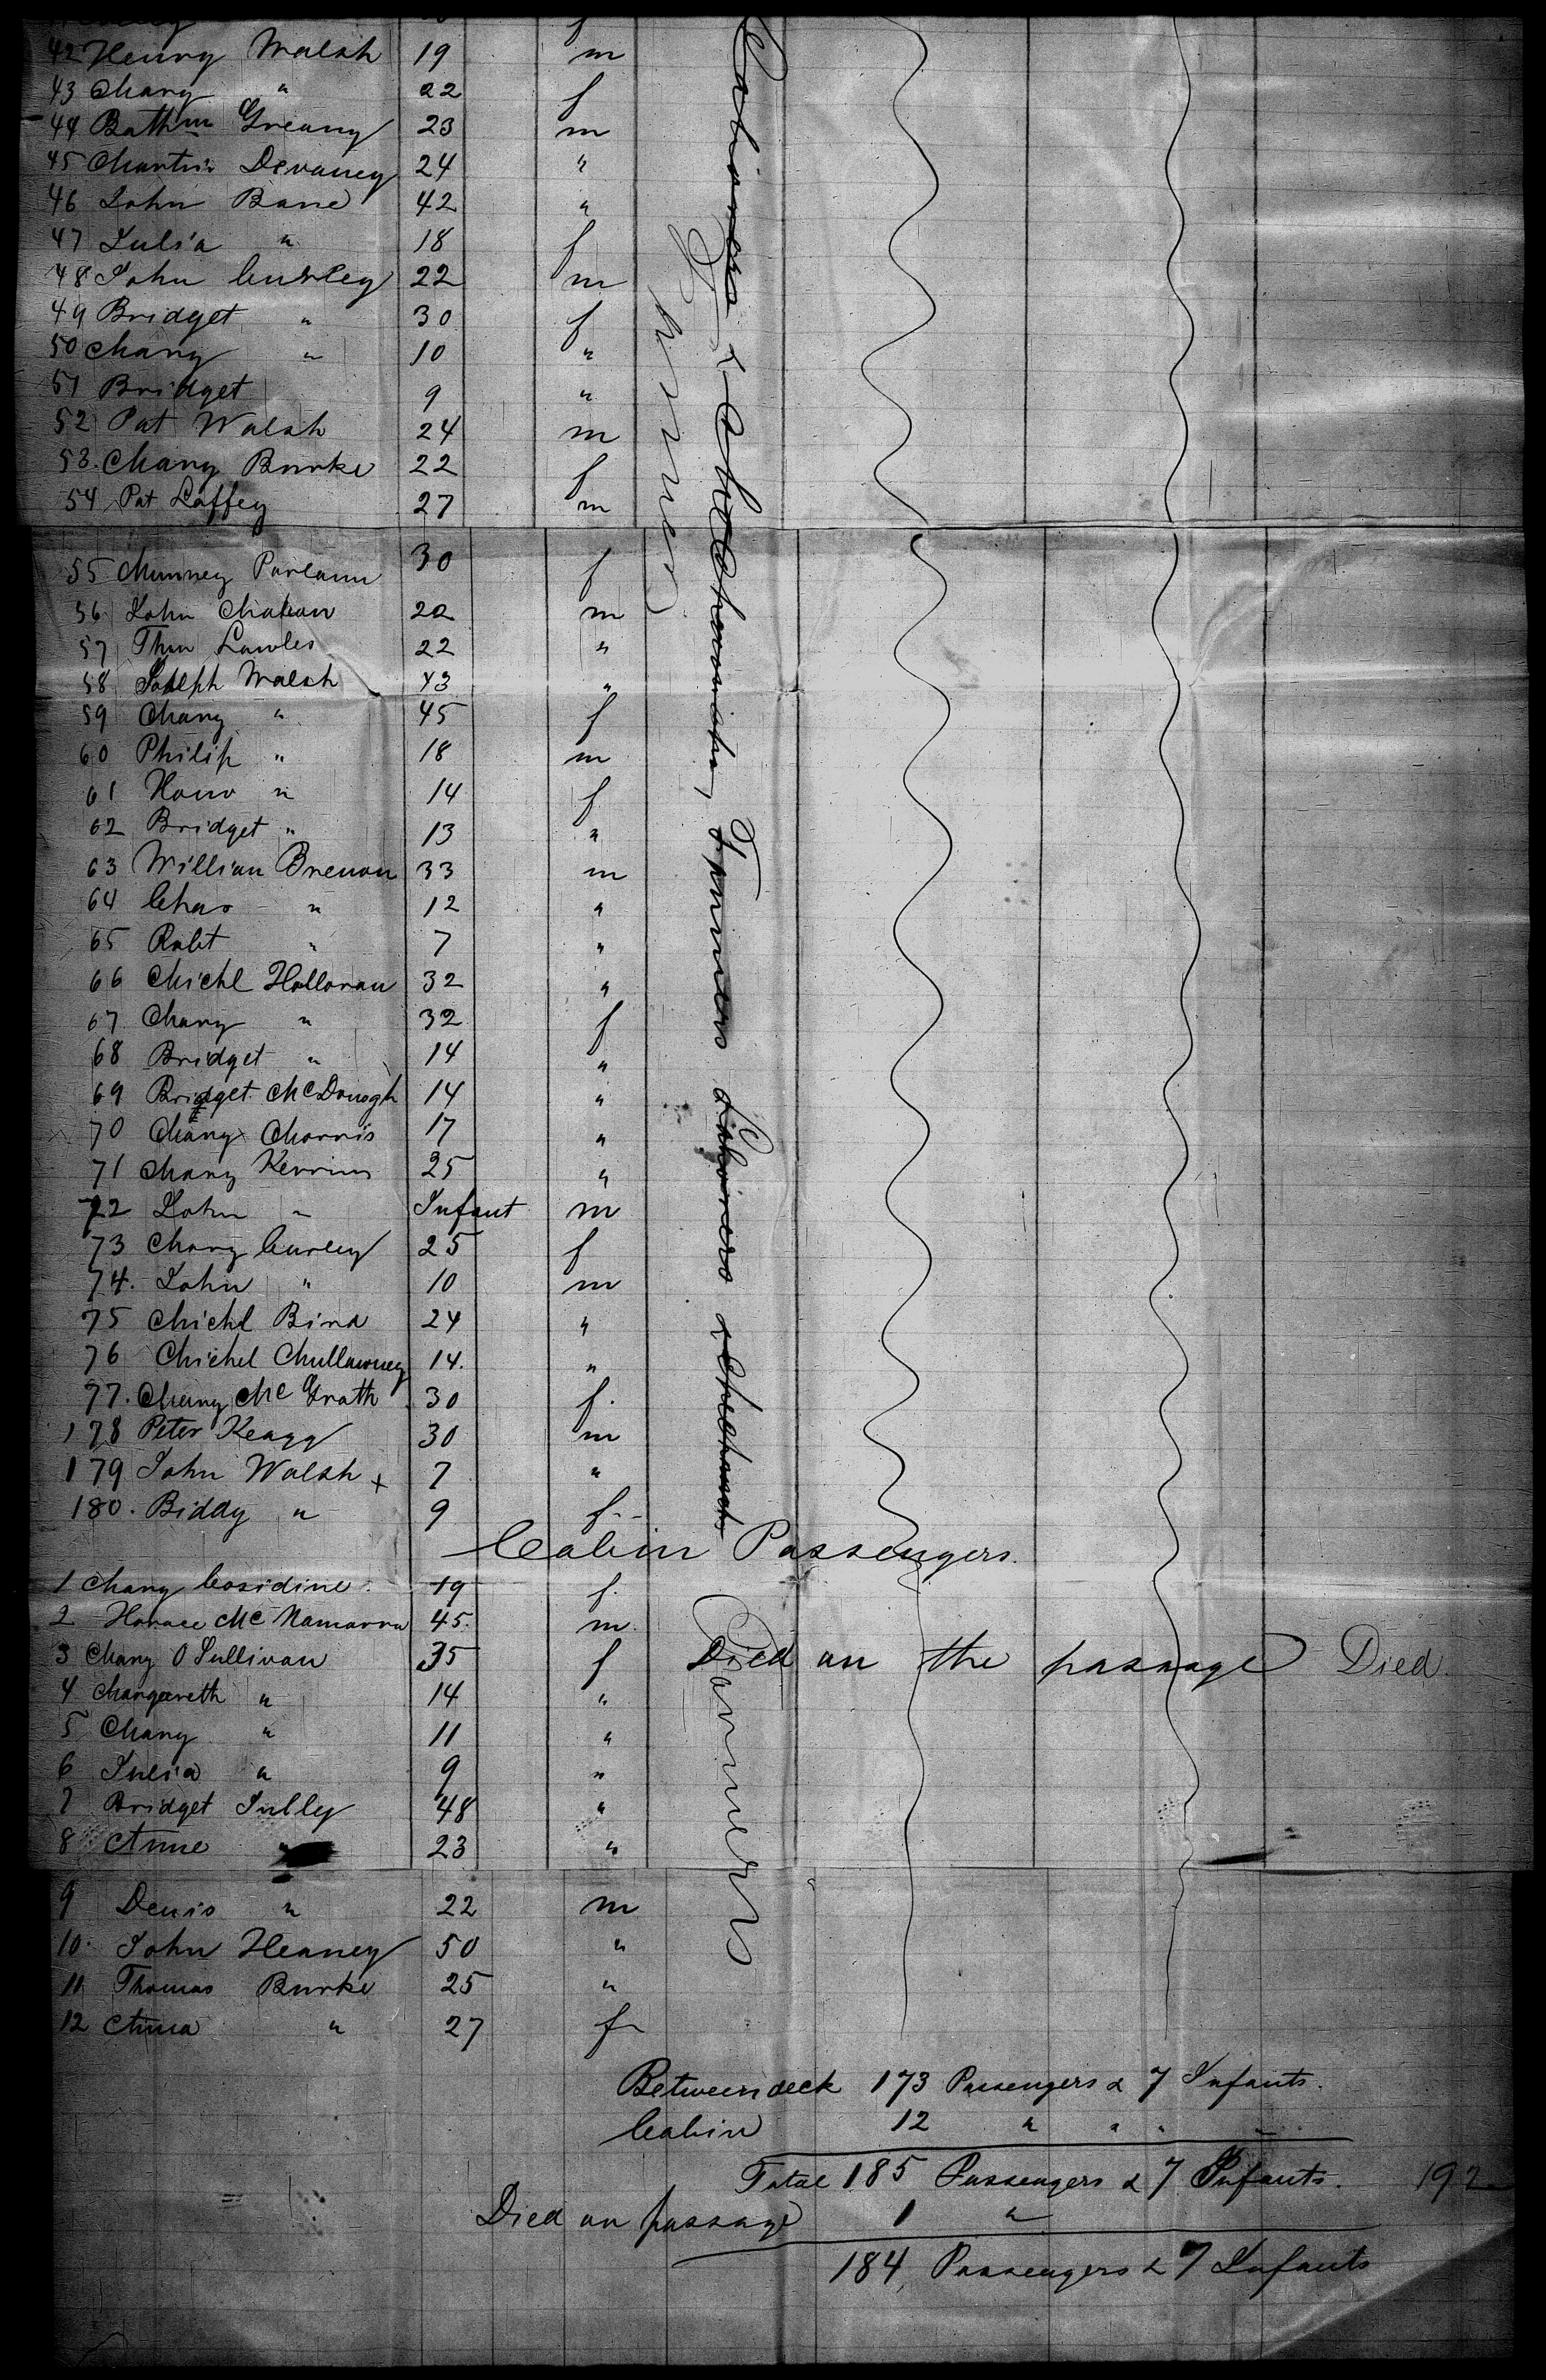 42 Henry Walsh 19 m
43 Mary " 22 f
44 Bathm Greany 23 m
45 Martin Devaney 24 "
46 John Bane 42 "
47 Julia " 18 f
48 John Curley 22 m
49 Bridget " 30 f
50 Mary " 10 "
51 Bridget 9 "
52 Pat Walsh 24 m
53. Mary Burke 22 f
54 Pat Laffey 27 m
55 30 f
56 John Mahan 20 m
57 Thm Lawles 22 "
58 Joseph Walsh 43 "
59 Mary " 45 f
60 Philip " 18 m
61 Hono " 14 f
62 Bridget " 13 "
63 William Brenan 33 m
64 Chas " 12 "
65 Robt " 7 "
66 Michl Holloran 32 "
67 Mary " 32 f
68 Bridget " 14 "
69 Bridget McDonogh 14 "
70 Mary Morris 17 "
71 Mary Kerrins 25 "
72 John " Infant m
73 Mary Curley 25 f
74. John " 10 m
75 Michl Bird 24 "
76 Michel Mullawney 14. "
77. Mary Mc Grath 30 f.
178 Peter Keagg 30 m
179 John Walsh + 7 "
180. Biddy " 9 f
Farmers Labourers
Cabin Passengers.
1 Mary Cosidine. 19 f.
2 Horace Mc Namarra 45. m.
3 Mary O Sullivan 35 f Died on the passage Died.
4 Margareth " 14 "
5 Mary " 11 "
6 Julia " 9 "
7 Bridget Tully 48 "
8 Anne " 23 "
9 Denis " 22 m
10. John Heaney 50 "
11 Thomas Burke 25 "
12 Anna " 27 f
Farmers
Between deck 173 Passengers & 7 Infants.
Cabin 12 " " "
Total 185 Passengers & 7 Infants. 192
Died on passage 1 "
184 Passengers & 7 Infants